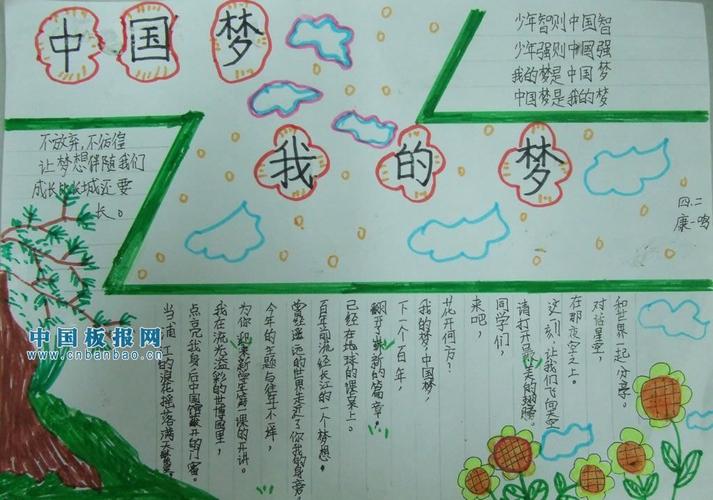 中国梦
少年智则中国智
少年强则中国强
我的梦是中国梦
中国梦是我的梦
不放弃,不彷徨
让梦想伴随我们
成长比长城还要
长。
我的梦
四.二
康一鸣
当浦江的浪花摇落满天繁星
点亮我身后中国馆敞开的门窗。
我在流光溢彩的世博园里,
为你迎来新学年第一课的开讲。
今年的主题与往年不一样,
曾经遥远的世界走进了你我的身旁。
百年前流经长江的一个梦想。
已经在地球的课桌上。
翻开了崭新的篇章,
下一个百年,
我的梦,中国梦,
花开何方?
来吧,
同学们,
请打开最美的翅膀。
这一刻,让我们飞向天空
在那夜空之上。
对话星空,
和世界一起分享。
中国板报网
www.cnbanbao.cn